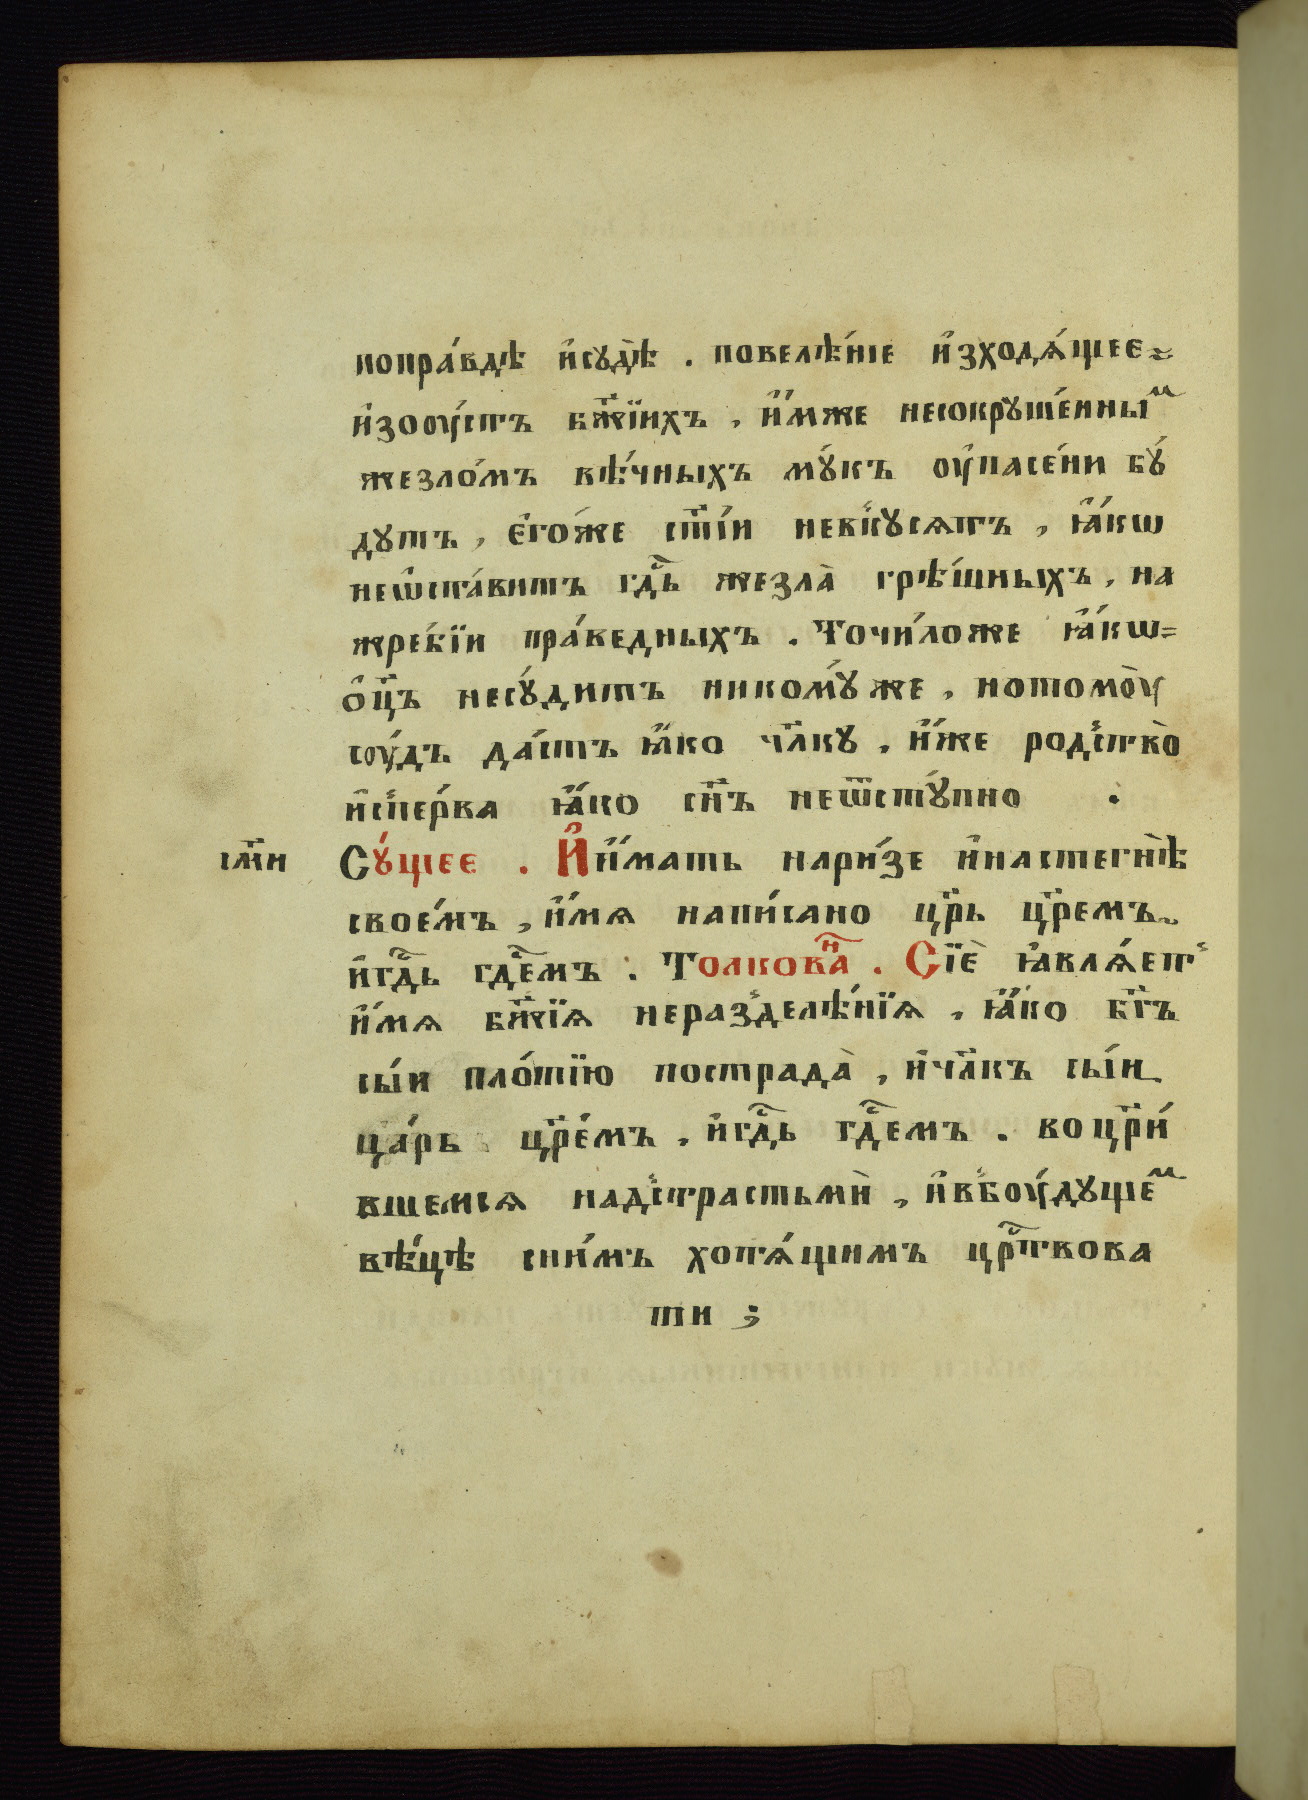 попра́вдѣ и҆су́дѣ . повелѣ́нїе и҆зходѧ́щее
и҆зоу́стъ бж҃їихъ , и҆́мже несокруше́нныⷨ
жезло́мъ вѣ́чныхъ му́къ оу҆пасе́ни бу́
дутъ , є҆го́же ст҃і́и невкусѧтъ , ꙗ҆́кѡ
неѡ҆ста́витъ гдⷭ҇ь жезла̀ грѣ́шныхъ , на
жребїи пра́ведныхъ . Точи́ложе ꙗ҆́кѡ
ѻ҆ц҃ъ несу́дитъ никому́же , нотомо̀у
соу́дъ да́стъ ꙗ҆́ко чл҃ку , и҆́же родⷭ҇тво̀
и҆спе́рва ꙗ҆́ко сн҃ъ неѿсту́пно .
см҃и Су́щее . И҆ и҆́мать нари́зе и҆настегнѣ̀
свое́мъ , и҆́мѧ напи́сано цр҃ь цр҃емъ
и҆гдⷭ҇ь гдⷭ҇емъ . Толковаⷩ҇ . Сїѐ ꙗ҆влѧ́етⷭ
и҆́мѧ бж҃їѧ нераздѣлѣ́нїѧ , ꙗ҆́ко бг҃ъ
сы́и пло́тїю пострада̀ , и҆чл҃къ сы́и
ца́рь цр҃е́мъ , и҆гдⷭ҇ь гдⷭ҇емъ . воцр҃и́
вшемсѧ надⷭ҇трастьмѝ , и҆вбоу́дущеⷨ
вѣ́цѣ сни́мъ хотѧ́щимъ црⷭ҇твова
ти ;